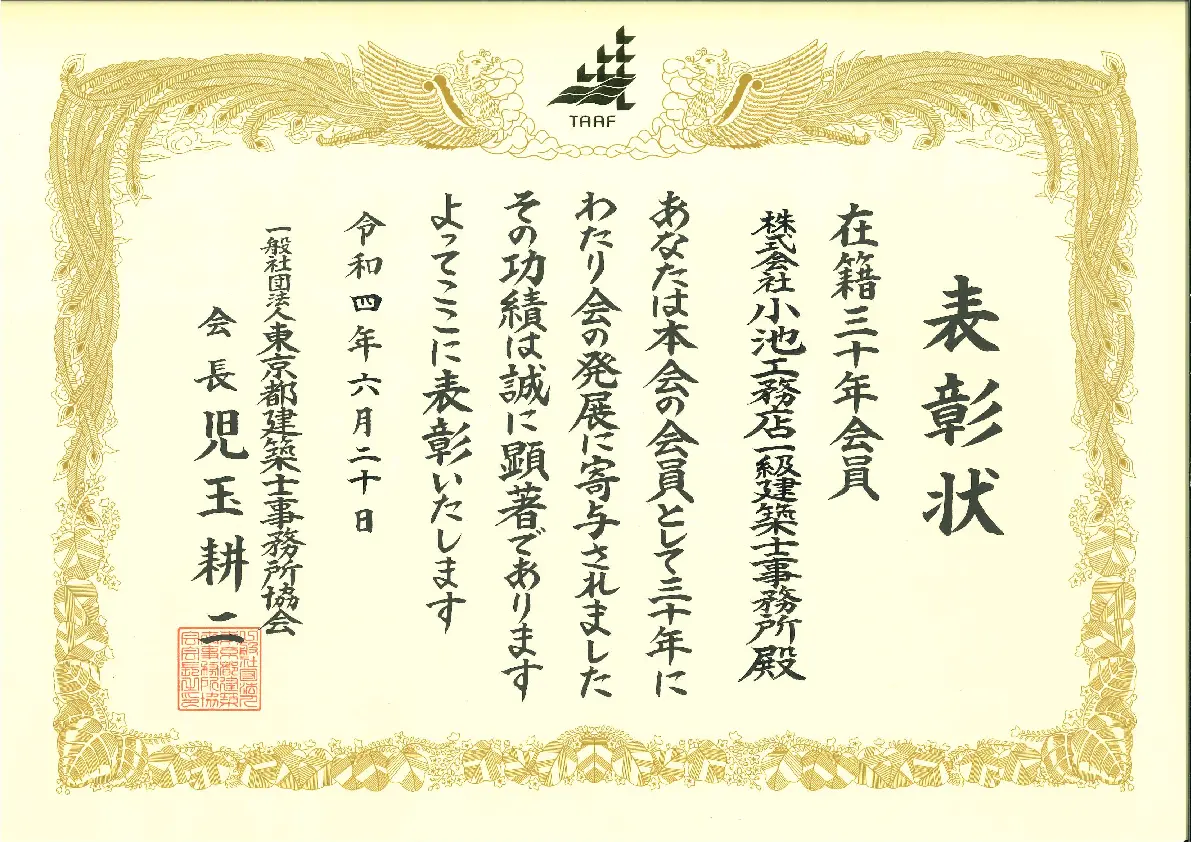 TAAF
表彰状
在籍三十年会員
株式会社小池工務店一級建築士事務所殿
あなたは本会の会員として三十年に
わたり会の発展に寄与されました
その功績は誠に顕著であります
よってここに表彰いたします
令和四年六月二十日
一般社団法人東京都建築士事務所協会
会長児玉耕二